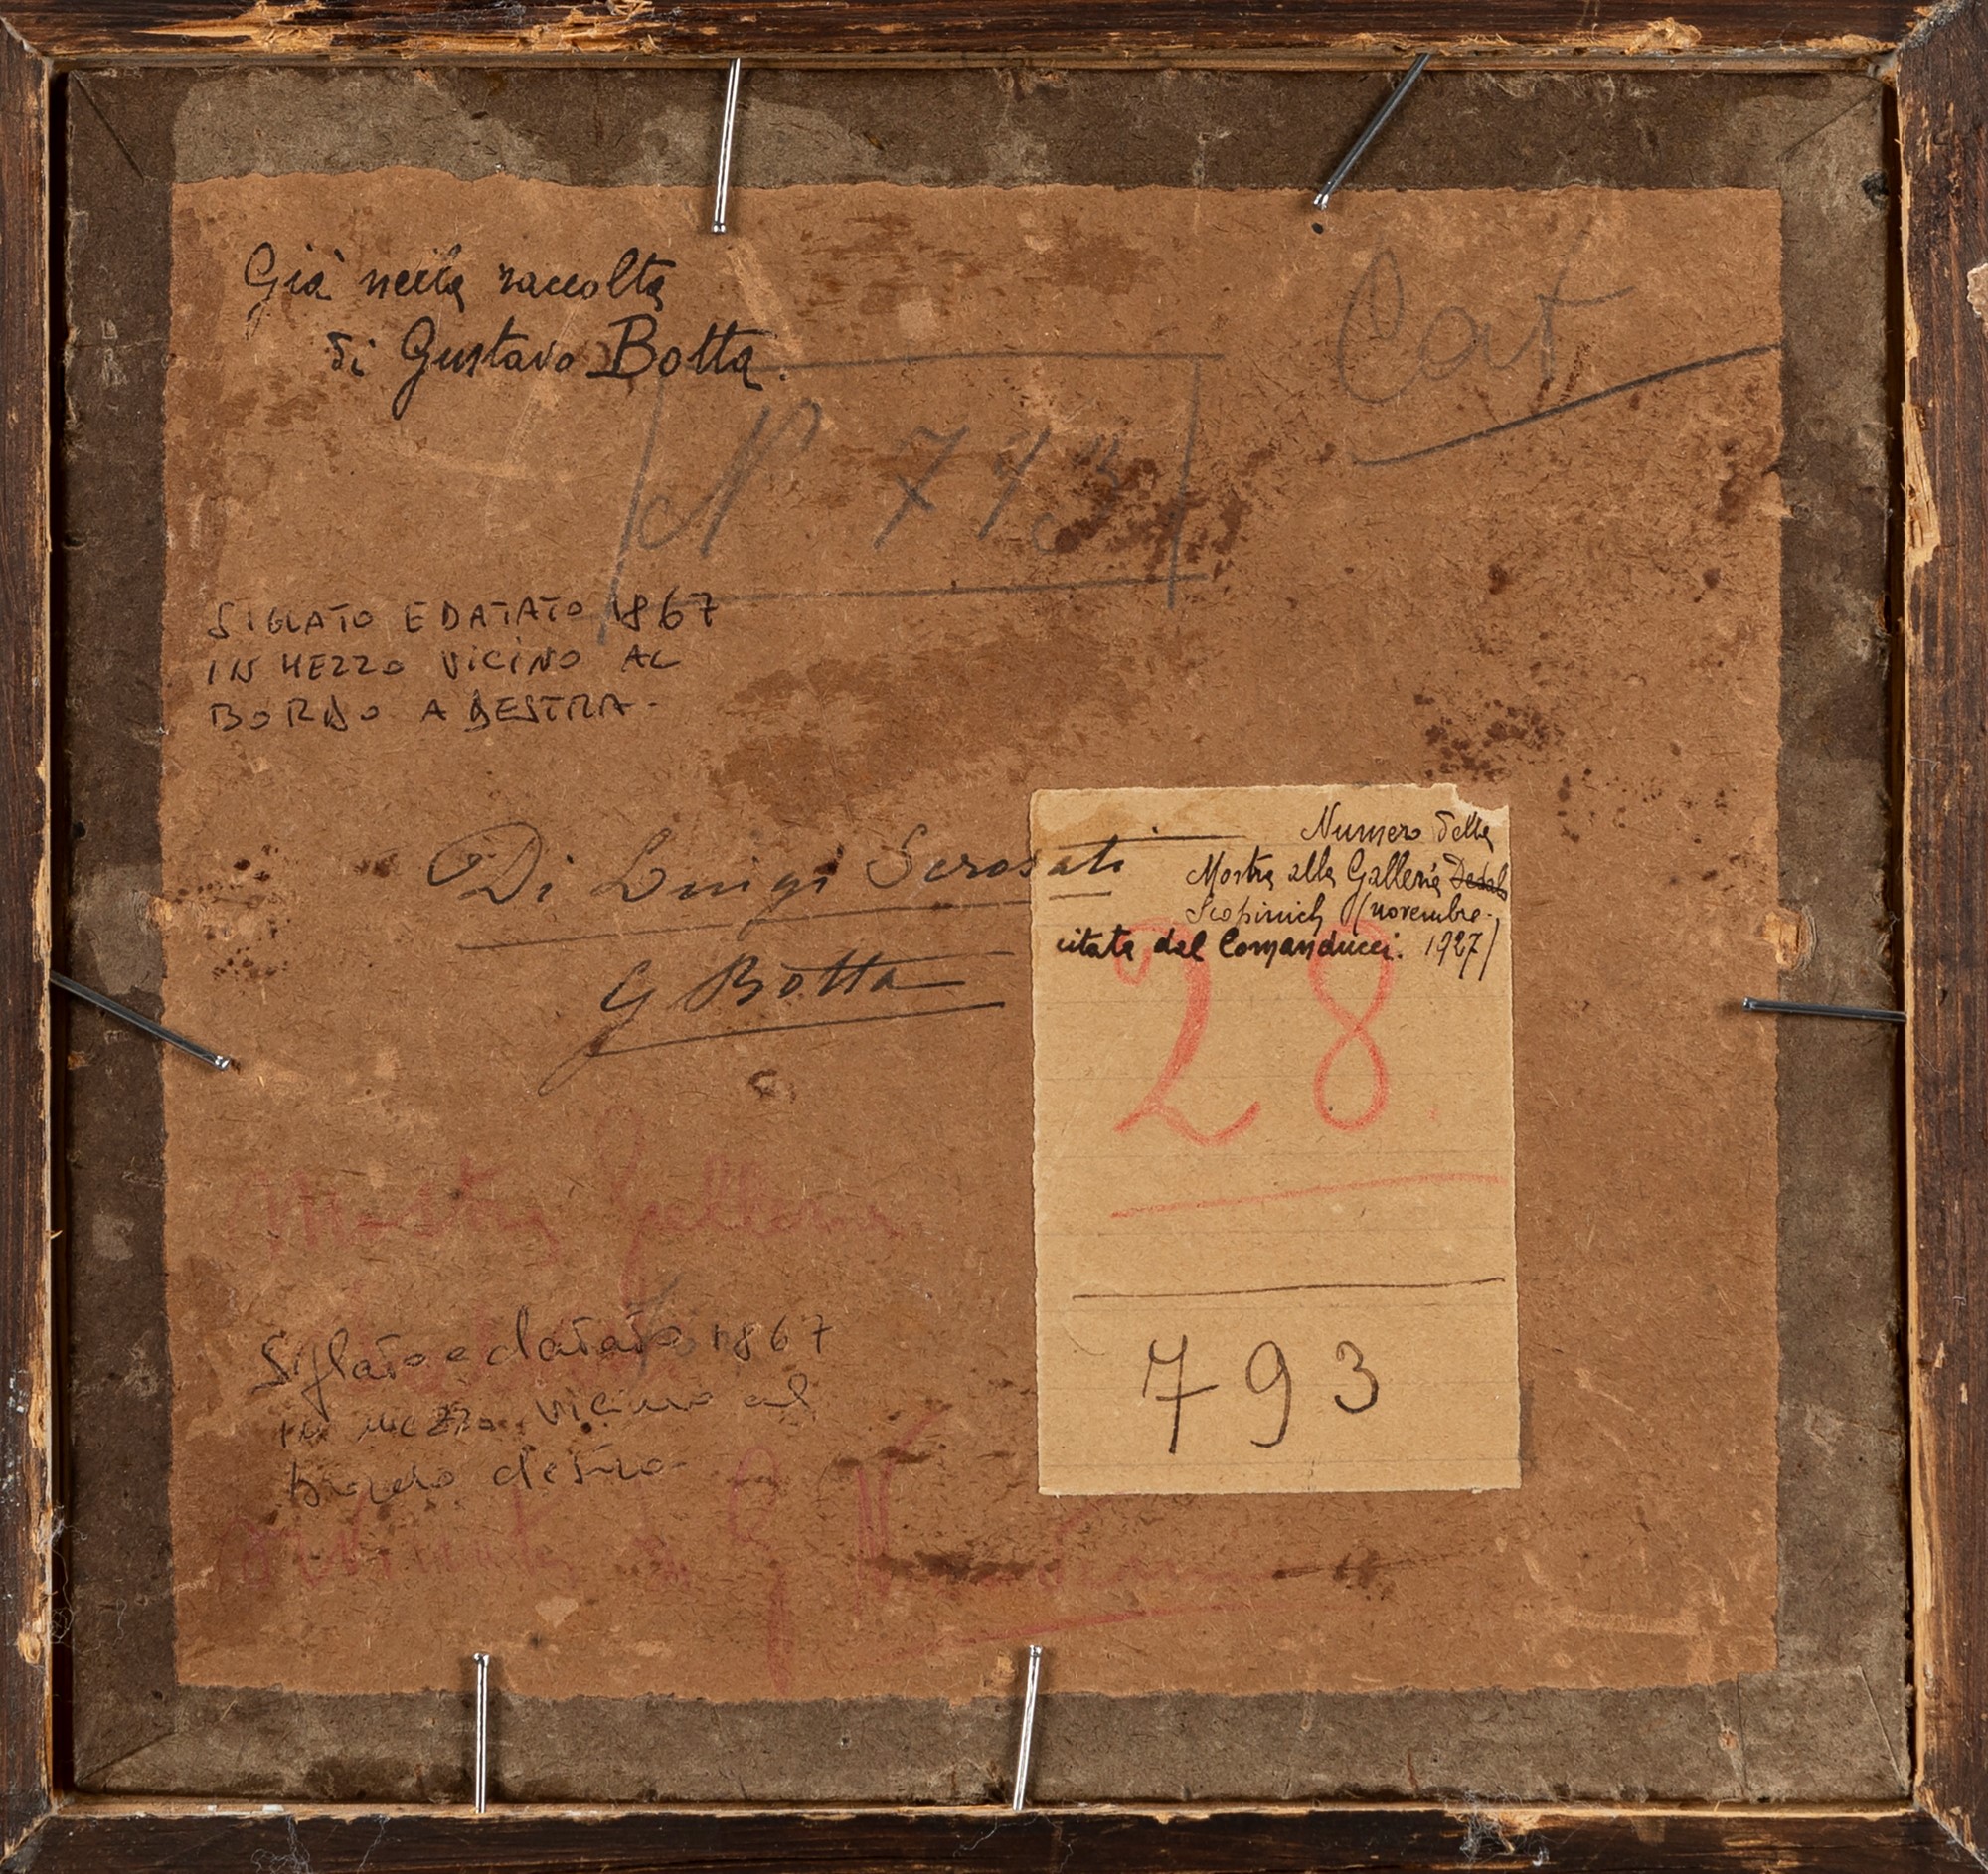 Già nella raccolta
di Gustavo Botta.
Cat
N° 793
SIGLATO E DATATO 1867
IN MEZZO VICINO AL
BORDO A DESTRA.
Di Luigi Serosati
G Botta
Numero della
Mostra alla Galleria Dedalo
Scopinich (novembre
citata dal Comanducci. 1927)
28.
793
Mostra Galleria
Siglato e datato 1867
in mezzo vicino al
bordo destro.
di G